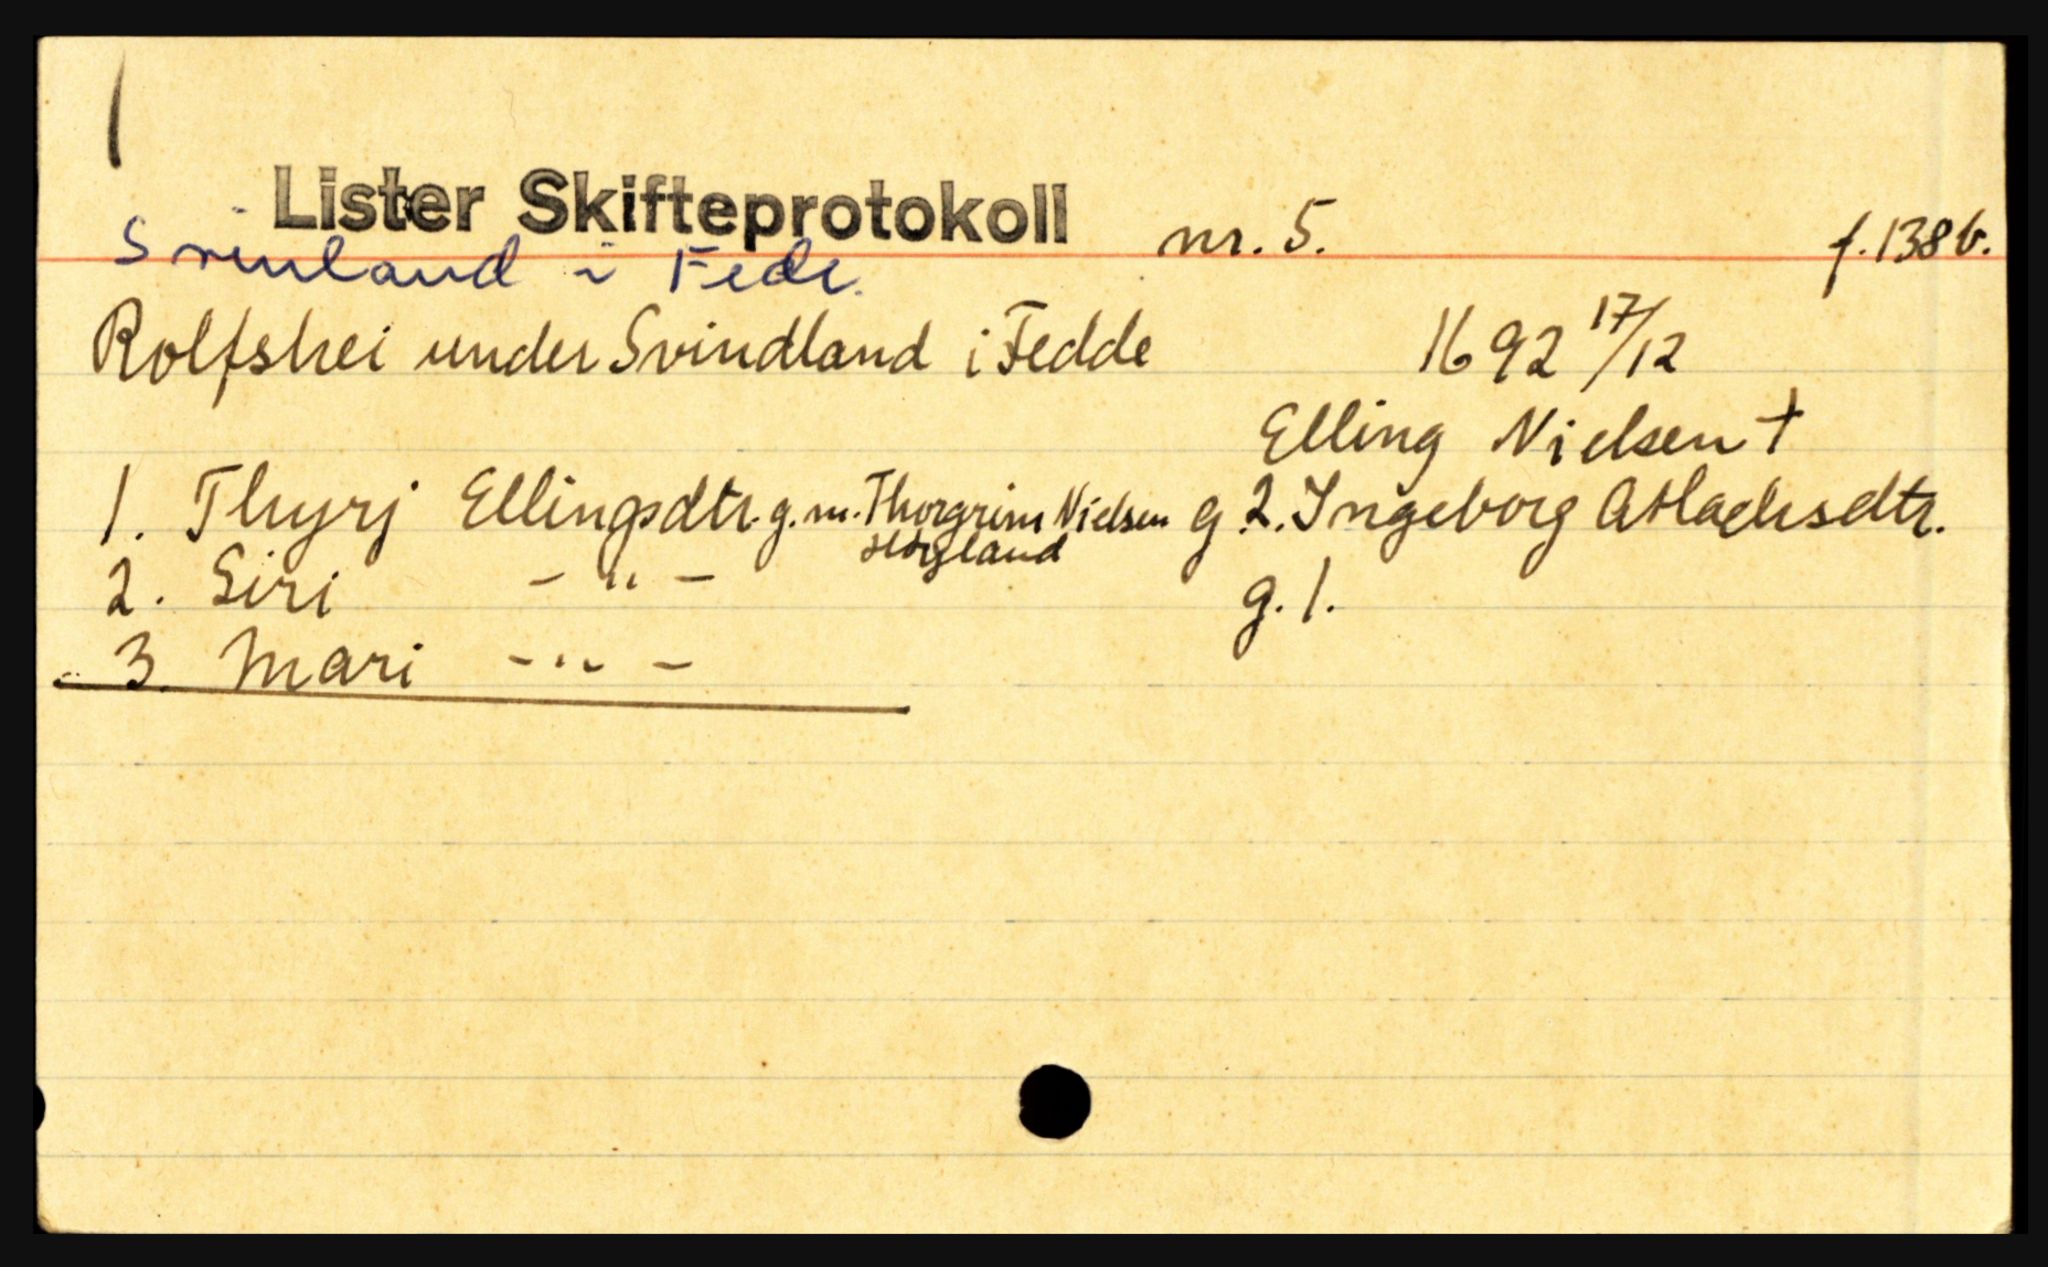 Lister Skifteprotokoll nr. 5. f. 138b.
Svinland i Fede.
Rolfshei under Svindland i Fedde 1692 17/12
Elling Nielsen +
1. Thyrj Ellingsdtr. g.m. Thorgrim Nielsen g 2. Ingeborg Atlachsdtr.
2. Siri - " - g. 1.
3. Mari - " -